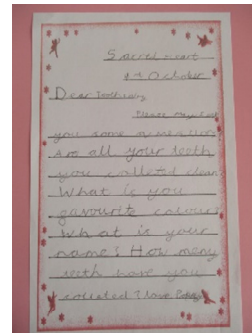 Sacred Heart
October
Dear Toothfairy
Please may I ask
you some
Are all your teeth
you colleted clean
What is you
favourite colour?
What is your
name? How meny
teeth have you
collated? love